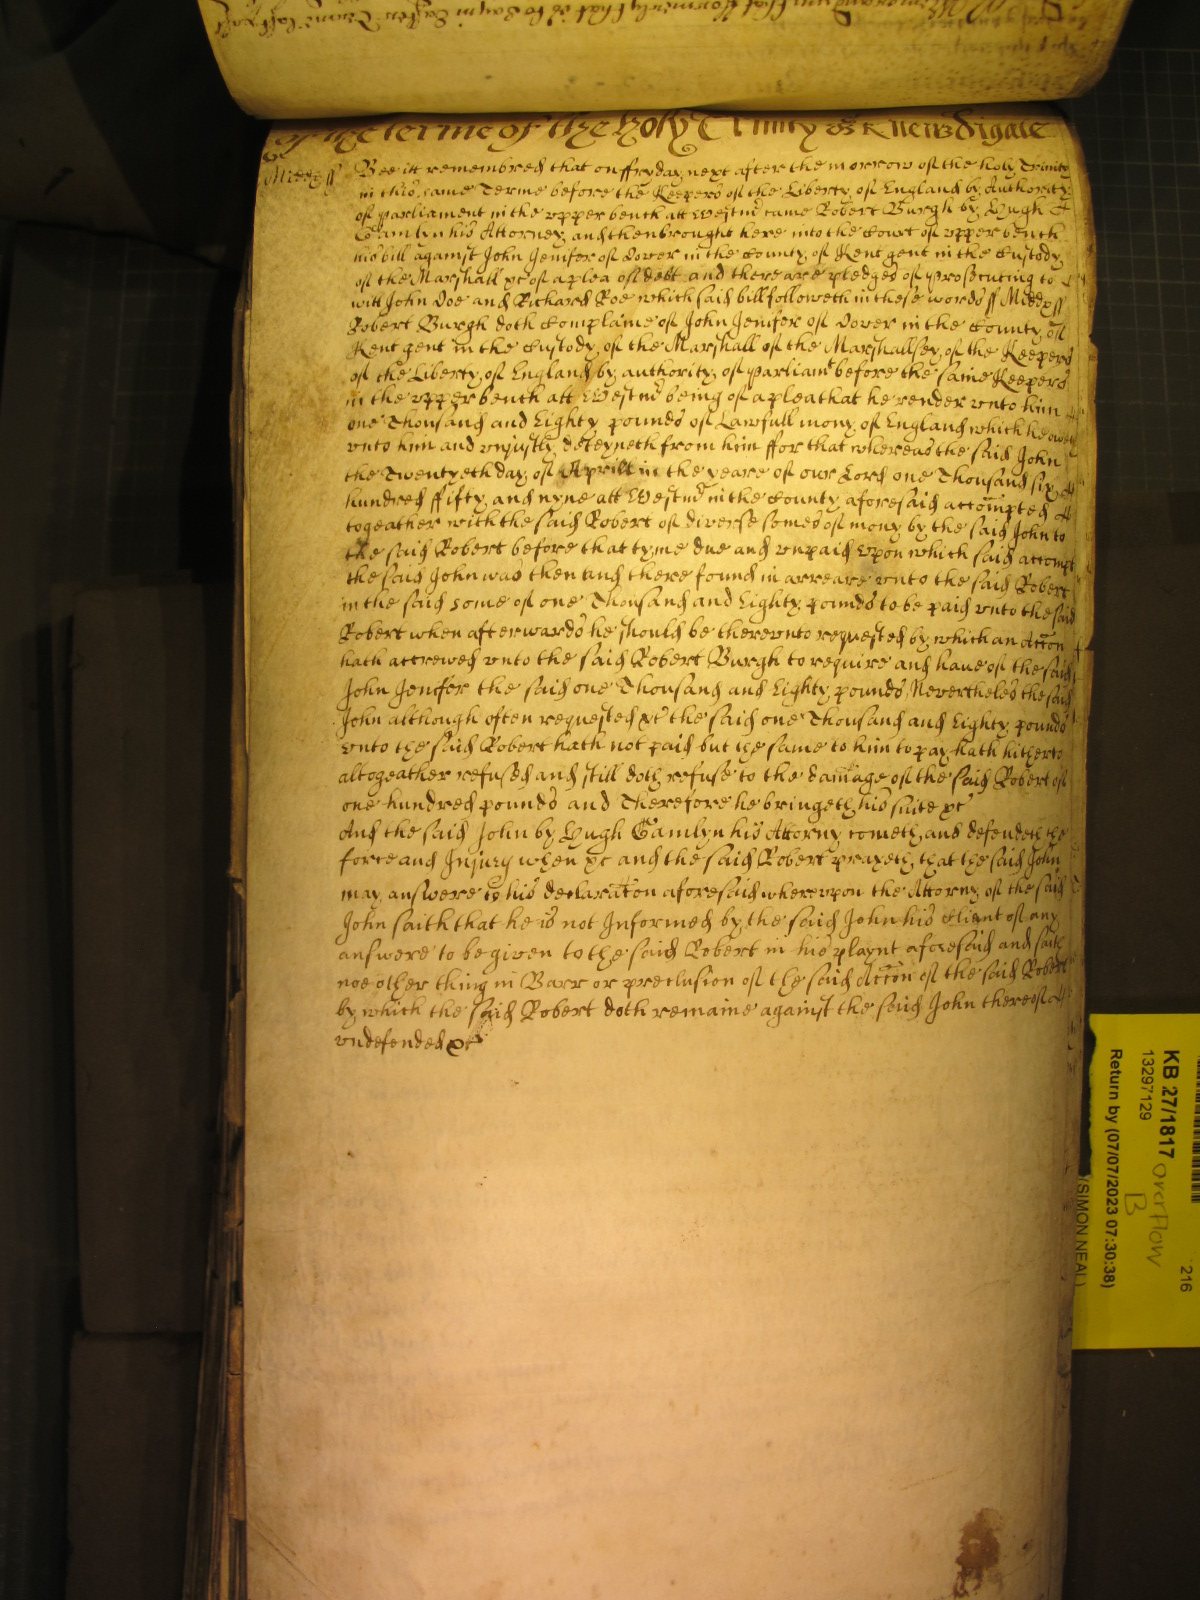 of the terme of the holy Trinity 1659 Newdigate
Midds ss Bee itt remembred that on ffryday next after the morrow of the holy Trinity
in this same Terme before the Keepers of the Liberty of England by Authority
of parliament in the vpper bench att Westmr came Robert Burgh by Hugh
Hamlyn his Attorney and then brought here into the Court of vpper bench
his bill against John Jenifer of Dover in the County of Kent gent in the Custody
of the Marshall xc of a plea of debt and there are pledges of prosecuting to
witt John Doe and Richard Roe which said bill followeth in these words ss Midds ss
Robert Burgh doth Complaine of John Jenifer of Dover in the County of
Kent gent in the Custody of the Marshall of the Marshallsey of the Keepers
of the Liberty of England by authority of parliamt before the same Keepers
in the vpper bench att Westmr being of a plea that he render vnto him
one Thousand and Eighty pounds of Lawfull mony of England which he oweth
vnto him and vnjustly deteyneth from him ffor that whereas the said John
the Twentyeth day of Aprill in the yeare of our Lord one Thousand six
hundred ffifty and nyne att Westmr in the County aforesaid accompted
togeather with the said Robert of diverse somes of mony by the said John to
the said Robert before that tyme due and vnpaid vpon which said accompt
the said John was then and there found in arreare vnto the said Robert
in the said some of one Thousand and Eighty pounds to be paid vnto the said
Robert when afterwards he should be therevnto requested by which an Accon
hath accrewed vnto the said Robert Burgh to require and haue of the said
John Jenifer the said one Thousand and Eighty pounds Nevertheles the said
John although often requested xc the said one Thousand and Eighty pounds
vnto the said Robert hath not paid but the same to him to pay hath hitherto
altogeather refused and still doth refuse to the damage of the said Robert of
one hundred pounds and Therefore he bringeth his suite xc
And the said John by Hugh Hamlyn his Attorny cometh and defendeth the
force and Injury when xc and the said Robert prayeth that the said John
may answere to his declaracon aforesaid wherevpon the Attorny of the said
John saith that he is not Informed by the said John his Client of any
answere to be given to the said Robert in his playnt aforesaid and saith
noe other thing in Barr or preclusion of the said Accon of the said Robert
by which the said Robert doth remaine against the said John thereof
vndefended xc
KB 27/1817 overflow
B
13297129
216
Return by (07/07/2023 07:30:38)
(SIMON NEAL)